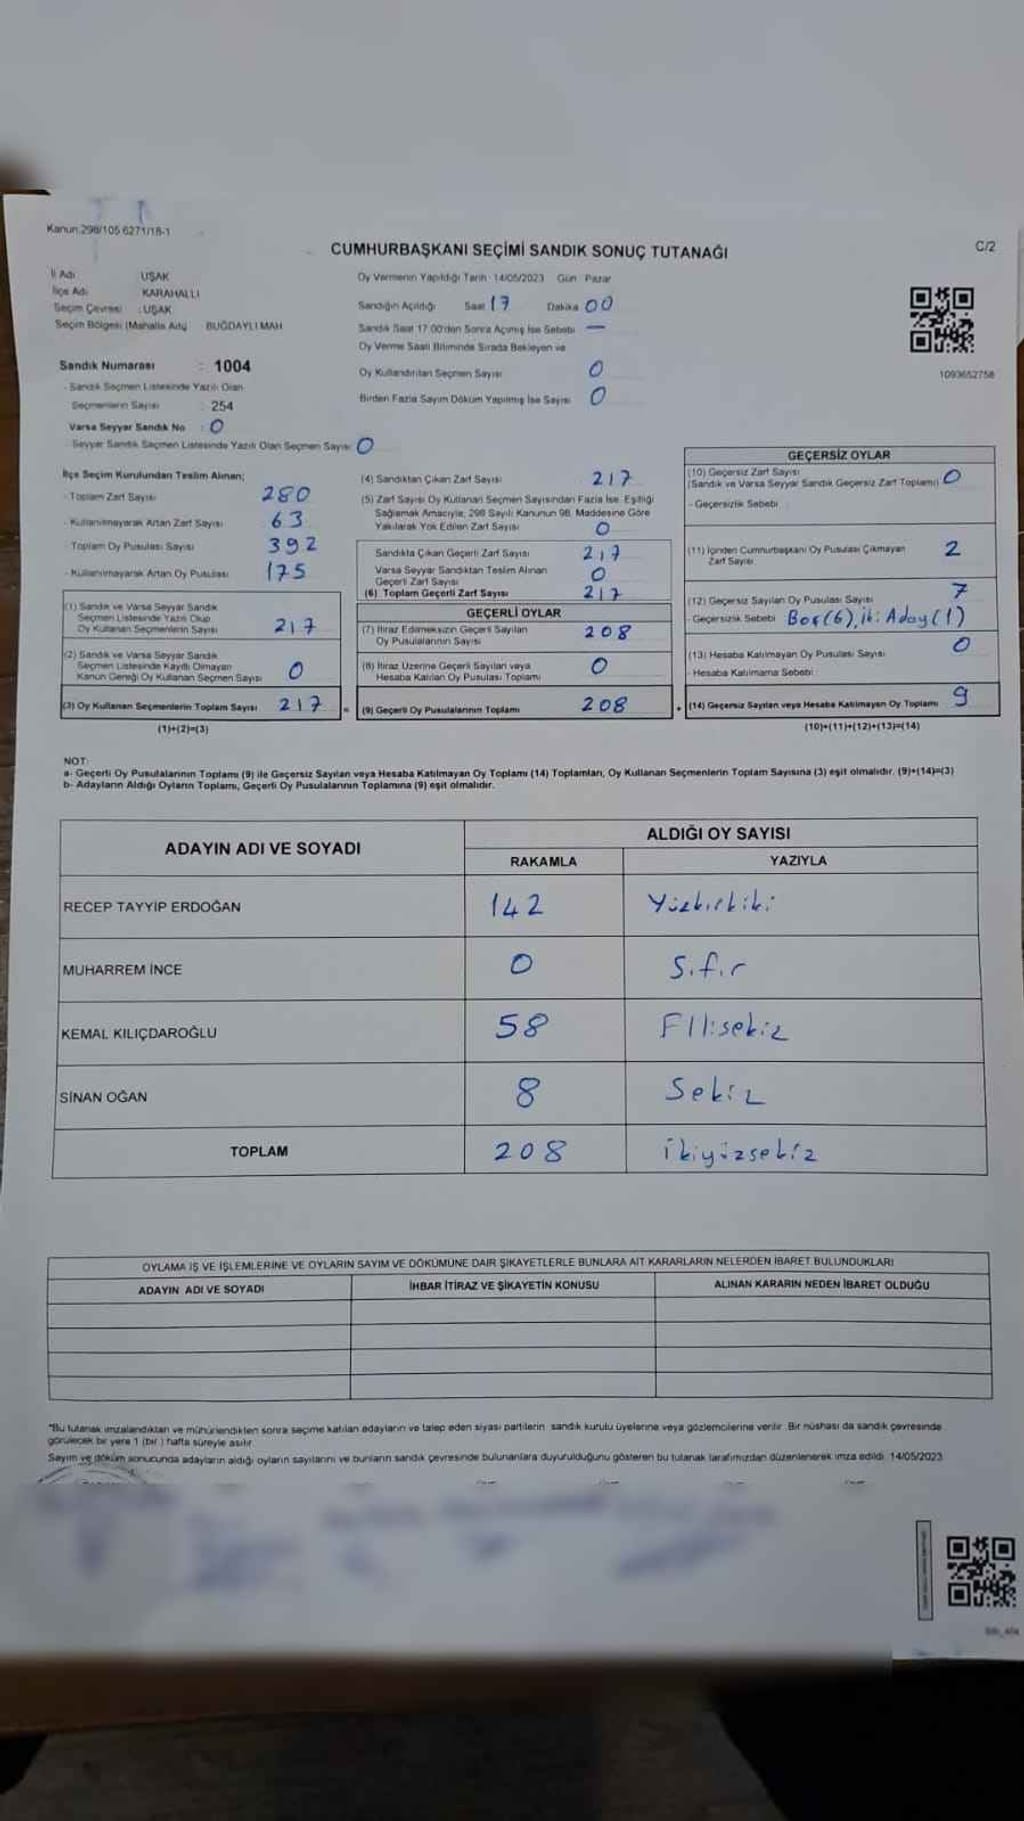 Kanun:298/105 6271/18-1
CUMHURBAŞKANI SEÇİMİ SANDIK SONUÇ TUTANAĞI
C/2
İl Adı : UŞAK
İlçe Adı : KARAHALLI
Seçim Çevresi : UŞAK
Seçim Bölgesi (Mahalle Adı) BUĞDAYLI MAH
Sandık Numarası : 1004
- Sandık Seçmen Listesinde Yazılı Olan
Seçmenlerin Sayısı : 254
Varsa Seyyar Sandık No : 0
- Seyyar Sandık Seçmen Listesinde Yazılı Olan Seçmen Sayısı 0
Oy Vermenin Yapıldığı Tarih : 14/05/2023 Gün : Pazar
Sandığın Açıldığı Saat 17 Dakika 00
Sandık Saat 17.00'den Sonra Açılmış İse Sebebi —
Oy Verme Saati Bitiminde Sırada Bekleyen ve
Oy Kullandırılan Seçmen Sayısı 0
Birden Fazla Sayım Döküm Yapılmış İse Sayısı 0
1093652758
İlçe Seçim Kurulundan Teslim Alınan;
- Toplam Zarf Sayısı 280
- Kullanılmayarak Artan Zarf Sayısı 63
- Toplam Oy Pusulası Sayısı 392
- Kullanılmayarak Artan Oy Pusulası 175
(1) Sandık ve Varsa Seyyar Sandık
Seçmen Listesinde Yazılı Olup
Oy Kullanan Seçmenlerin Sayısı 217
(2) Sandık ve Varsa Seyyar Sandık
Seçmen Listesinde Kayıtlı Olmayan
Kanun Gereği Oy Kullanan Seçmen Sayısı 0
(3) Oy Kullanan Seçmenlerin Toplam Sayısı 217 =
(1)+(2)=(3)
(4) Sandıktan Çıkan Zarf Sayısı 217
(5) Zarf Sayısı Oy Kullanan Seçmen Sayısından Fazla İse, Eşitliği
Sağlamak Amacıyla; 298 Sayılı Kanunun 98. Maddesine Göre
Yakılarak Yok Edilen Zarf Sayısı 0
Sandıkta Çıkan Geçerli Zarf Sayısı 217
Varsa Seyyar Sandıktan Teslim Alınan
Geçerli Zarf Sayısı 0
(6) Toplam Geçerli Zarf Sayısı 217
GEÇERLİ OYLAR
(7) İtiraz Edilmeksizin Geçerli Sayılan
Oy Pusulalarının Sayısı 208
(8) İtiraz Üzerine Geçerli Sayılan veya
Hesaba Katılan Oy Pusulası Toplamı 0
(9) Geçerli Oy Pusulalarının Toplamı 208 +
GEÇERSİZ OYLAR
(10) Geçersiz Zarf Sayısı
(Sandık ve Varsa Seyyar Sandık Geçersiz Zarf Toplamı) 0
- Geçersizlik Sebebi
(11) İçinden Cumhurbaşkanı Oy Pusulası Çıkmayan
Zarf Sayısı 2
(12) Geçersiz Sayılan Oy Pusulası Sayısı 7
- Geçersizlik Sebebi Boş(6), iki Aday(1)
(13) Hesaba Katılmayan Oy Pusulası Sayısı 0
- Hesaba Katılmama Sebebi
(14) Geçersiz Sayılan veya Hesaba Katılmayan Oy Toplamı 9
(10)+(11)+(12)+(13)=(14)
NOT:
a- Geçerli Oy Pusulalarının Toplamı (9) ile Geçersiz Sayılan veya Hesaba Katılmayan Oy Toplamı (14) Toplamları, Oy Kullanan Seçmenlerin Toplam Sayısına (3) eşit olmalıdır. (9)+(14)=(3)
b- Adayların Aldığı Oyların Toplamı, Geçerli Oy Pusulalarının Toplamına (9) eşit olmalıdır.
ADAYIN ADI VE SOYADI
ALDIĞI OY SAYISI
RAKAMLA YAZIYLA
RECEP TAYYİP ERDOĞAN 142 Yüzkırkiki
MUHARREM İNCE 0 Sıfır
KEMAL KILIÇDAROĞLU 58 Ellisekiz
SİNAN OĞAN 8 Sekiz
TOPLAM 208 ikiyüzsekiz
OYLAMA İŞ VE İŞLEMLERİNE VE OYLARIN SAYIM VE DÖKÜMÜNE DAİR ŞİKAYETLERLE BUNLARA AİT KARARLARIN NELERDEN İBARET BULUNDUKLARI
ADAYIN ADI VE SOYADI İHBAR İTİRAZ VE ŞİKAYETİN KONUSU ALINAN KARARIN NEDEN İBARET OLDUĞU
*Bu tutanak imzalandıktan ve mühürlendikten sonra seçime katılan adayların ve talep eden siyasi partilerin sandık kurulu üyelerine veya gözlemcilerine verilir. Bir nüshası da sandık çevresinde
görülecek bir yere 1 (bir) hafta süreyle asılır
Sayım ve döküm sonucunda adayların aldığı oyların sayılarını ve bunların sandık çevresinde bulunanlara duyurulduğunu gösteren bu tutanak tarafımızdan düzenlenerek imza edildi. 14/05/2023